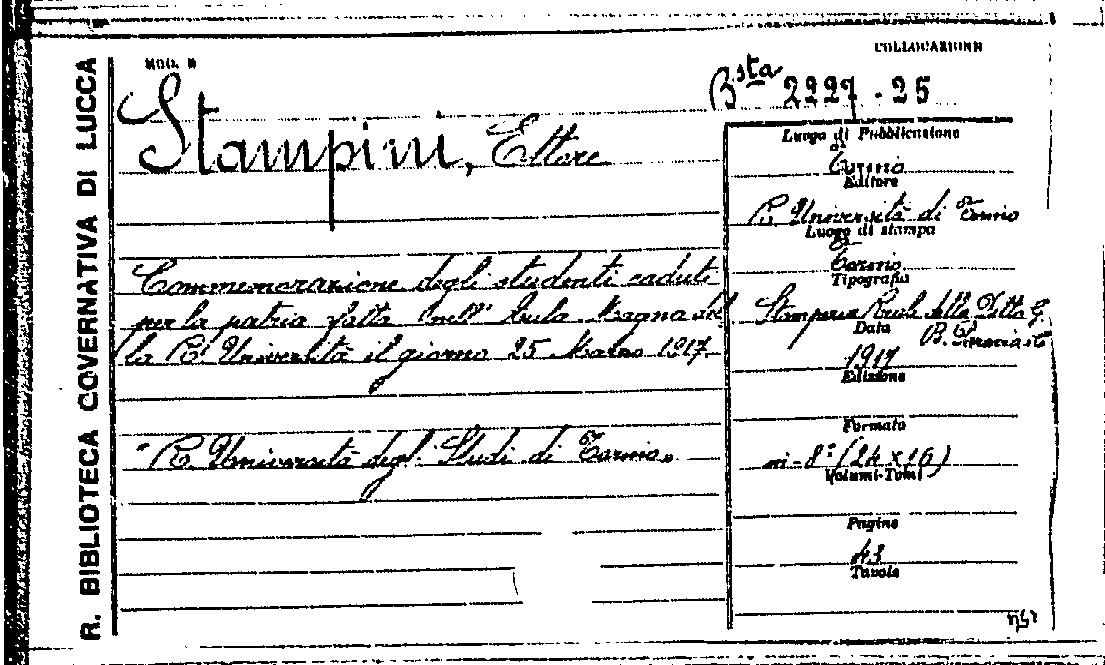 R. BIBLIOTECA GOVERNATIVA DI LUCCA
MOD. B
COLLOCAZIONE
Bsta 2227 - 25
Stampini, Ettore
Commemorazione degli studenti caduti
per la patria fatta nell' Aula Magna del
la R. Università il giorno 25 Marzo 1917
"R. Università degli Studi di Torino"
Luogo di Pubblicazione
Torino
Editore
R. Università di Torino
Luogo di stampa
Torino
Tipografia
Stamperia Reale della Ditta G.
B. Paravia &
Data
1917
Edizione
Formato
in-8° (24 x 16)
Volumi-Tomi
Pagine
43
Tavole